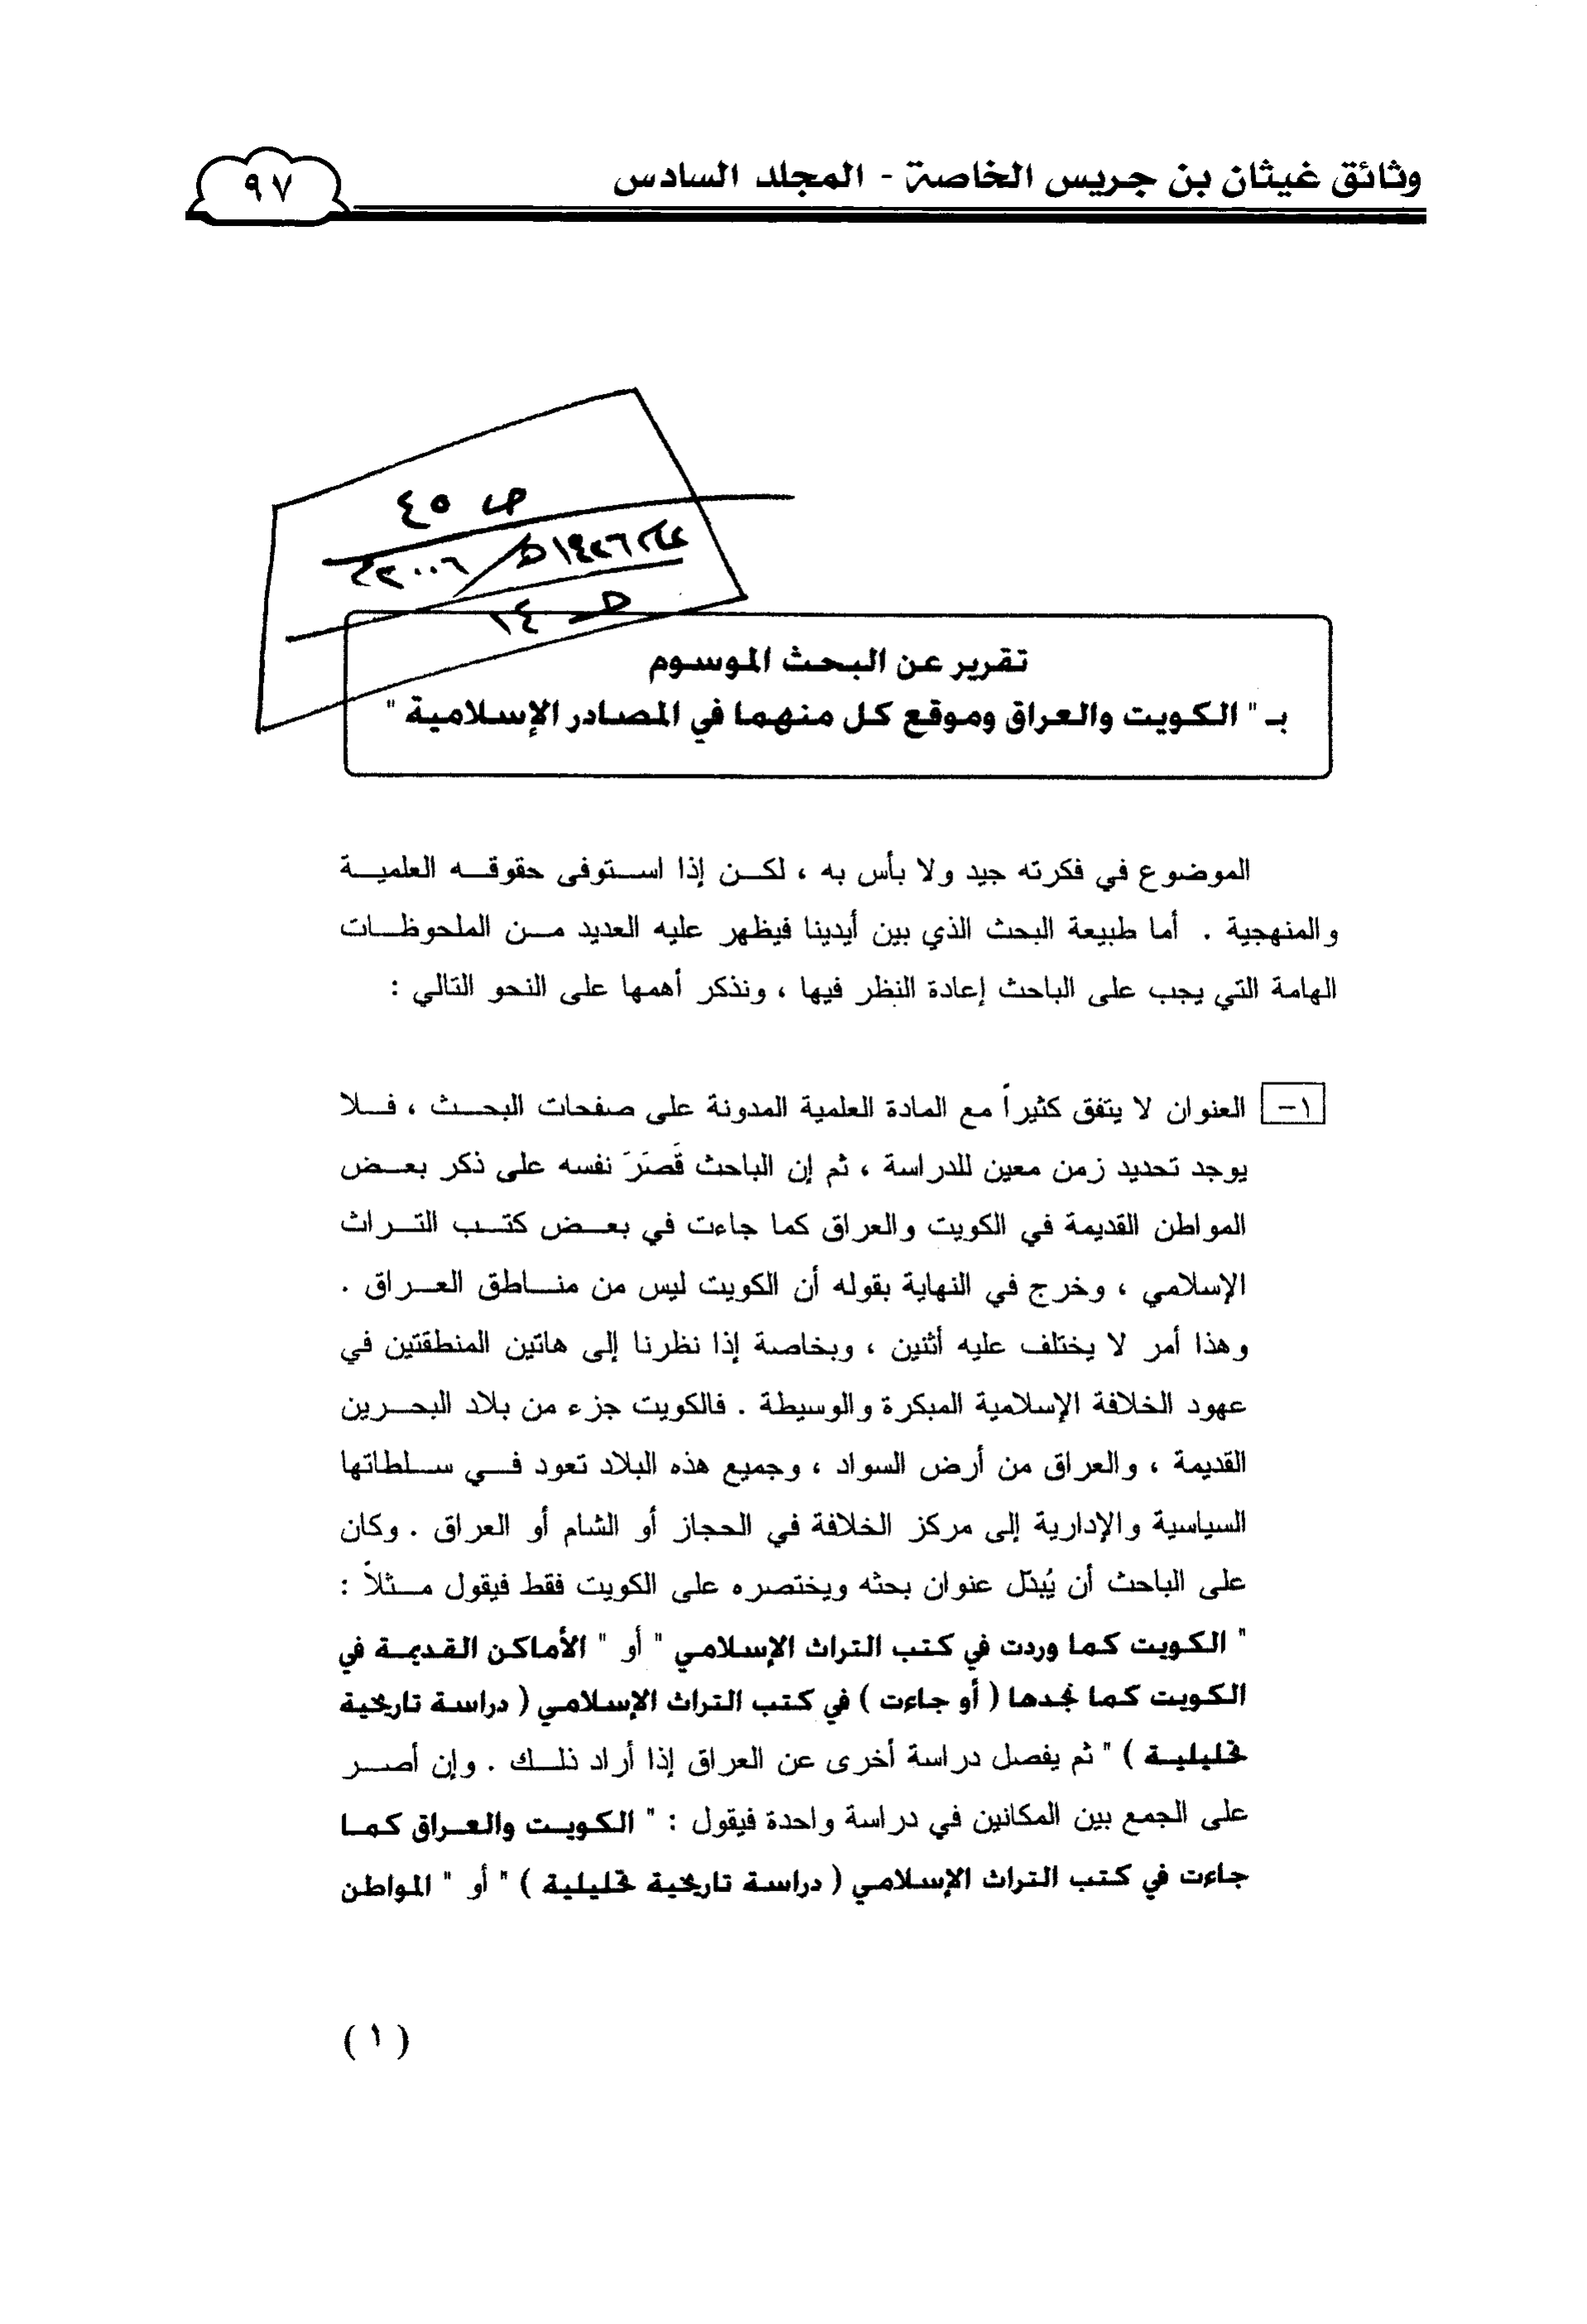 وثائق غيثان بن جريس الخاصة - المجلد السادس
٩٧
ص ٤٥
١٤٢٦هـ / ٢٠٠٦م
١٤
تقرير عن البحث الموسوم
بـ " الكويت والعراق وموقع كل منهما في المصادر الإسلامية "
الموضوع في فكرته جيد ولا بأس به ، لكـن إذا استـوفى حقوقـه العلميـة
والمنهجية . أما طبيعة البحث الذي بين أيدينا فيظهر عليه العديد مـن الملحوظـات
الهامة التي يجب على الباحث إعادة النظر فيها ، ونذكر أهمها على النحو التالي :
١- العنوان لا يتفق كثيراً مع المادة العلمية المدونة على صفحات البحـث ، فـلا
يوجد تحديد زمن معين للدراسة ، ثم إن الباحث قَصَرَ نفسه على ذكر بعـض
المواطن القديمة في الكويت والعراق كما جاءت في بعـض كتـب التـراث
الإسلامي ، وخرج في النهاية بقوله أن الكويت ليس من منـاطق العـراق .
وهذا أمر لا يختلف عليه أثنين ، وبخاصة إذا نظرنا إلى هاتين المنطقتين في
عهود الخلافة الإسلامية المبكرة والوسيطة . فالكويت جزء من بلاد البحـرين
القديمة ، والعراق من أرض السواد ، وجميع هذه البلاد تعود فـي سـلطاتها
السياسية والإدارية إلى مركز الخلافة في الحجاز أو الشام أو العراق . وكان
على الباحث أن يُبدّل عنوان بحثه ويختصره على الكويت فقط فيقول مـثلاً :
" الكويت كما وردت في كتب التراث الإسلامي " أو " الأماكن القديمـة في
الكويت كما نجدها ( أو جاءت ) في كتب التراث الإسلامي ( دراسة تاريخية
تحليليـة ) " ثم يفصل دراسة أخرى عن العراق إذا أراد ذلـك . وإن أصـر
على الجمع بين المكانين في دراسة واحدة فيقول : " الكويـت والعـراق كمـا
جاءت في كتب التراث الإسلامي ( دراسة تاريخية تحليلية ) " أو " المواطن
( ١ )